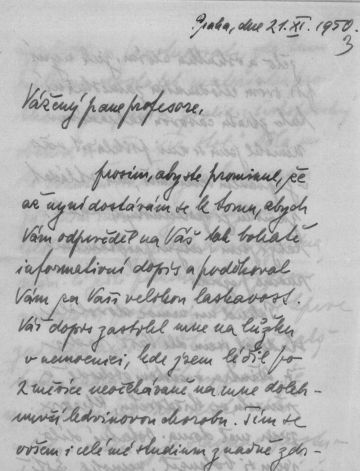 Praha, dne 21.XI. 1950.
3
Vážený pane profesore,
prosím, abyste prominul, že
až nyní dostávám se k tomu, abych
Vám odpověděl na Váš tak bohatě
informativní dopis a poděkoval
Vám za Vaši velikou laskavost.
Váš dopis zastihl mne na lůžku
v nemocnici, kde jsem léčil po
2 měsíce neočekávaně na mne doleh-
nuvší ledvinovou chorobu. Tím se
ovšem i celé mé studium značně zdr-